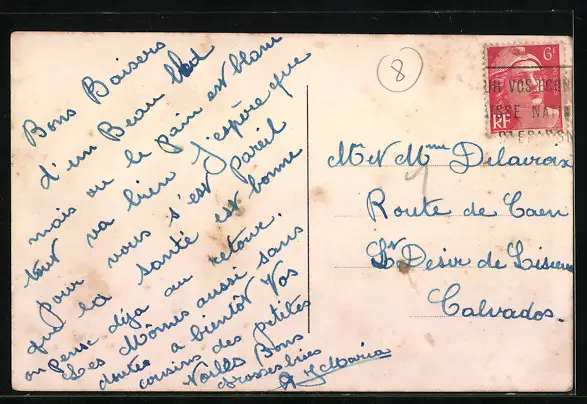 Bons Baisers
d'un Beau
mais ou le pain est blanc
tout va bien J'espère que
pour vous s'est Pareil
que la santé est bonne
on pense déja au retour.
Les Mômes aussi sans
doutes a bientôt Vos
cousins des petites
Bons
Grosses bises
Maria
8
6F
UR VOS ECON
ISSE NAT
D'EPARGN
RF
Mr et Mme Delavoix
Route de Caen
St Désir de Lisieux
Calvados.